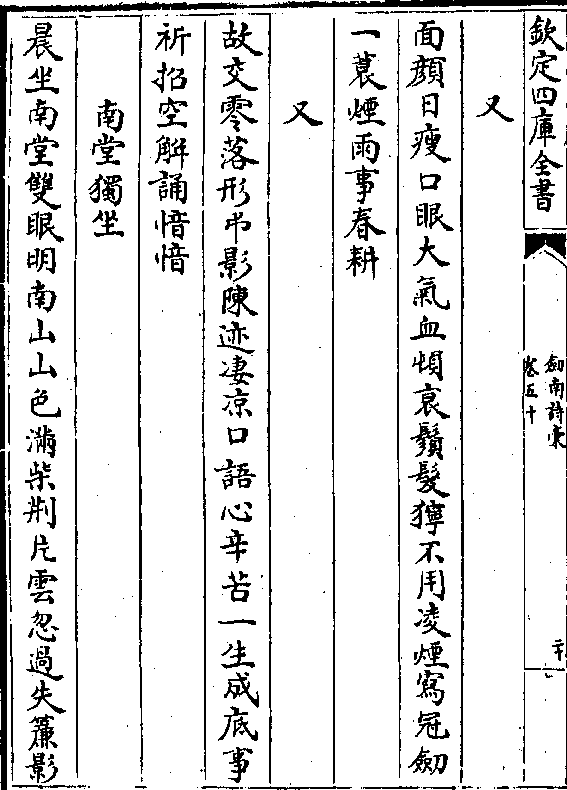 欽定四庫全書
劍南詩稾
卷五十
二十
又
面顔日瘦口眼大氣血頓衰鬚髮獰不用凌煙寫冠劒
一蓑煙雨事春耕
又
故交零落形弔影陳迹凄凉口語心辛苦一生成底事
祈招空解誦愔愔
南堂獨坐
晨坐南堂雙眼明南山山色滿柴荆片雲忽過失簾影